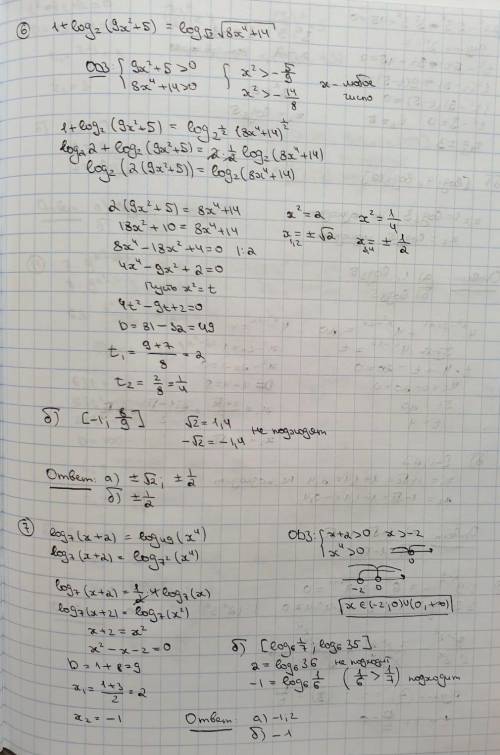 ⑥ 1+log₂(9x²+5) = log√2 √(8x⁴+14)
ОДЗ: { 9x²+5>0 { x²>-5/9 x - любое
8x⁴+14>0 x²>-14/8 число
1+log₂(9x²+5) = log₂^½ (8x⁴+14)^½
log₂2+log₂(9x²+5) = 2·½ log₂(8x⁴+14)
log₂(2(9x²+5)) = log₂(8x⁴+14)
2(9x²+5) = 8x⁴+14
18x²+10 = 8x⁴+14
8x⁴-18x²+4=0 |:2
4x⁴-9x²+2=0
Пусть x²=t
4t²-9t+2=0
D=81-32=49
t₁ = (9+7)/8 = 2
t₂ = 2/8 = 1/4
x²=2 x²=1/4
x₁,₂=±√2 x₃,₄=±1/2
б) [-1; 8/9]
√2=1,4
-√2=-1,4 не подходят
Ответ: а) ±√2, ±1/2
б) ±1/2
⑦ log₇(x+2) = log₄₉(x⁴)
log₇(x+2) = log₇²(x⁴)
ОДЗ: { x+2>0 x>-2
x⁴>0 0
-2 0
x∈(-2;0)∪(0;+∞)
log₇(x+2) = ½·4log₇(x)
log₇(x+2) = log₇(x²)
x+2 = x²
x²-x-2=0
D=1+8=9
x₁ = (1+3)/2 = 2
x₂ = -1
б) [log₆ 1/7; log₆ 35]
2=log₆36 не подходит
-1=log₆ 1/6 (1/6 > 1/7) подходит
Ответ: а) -1, 2
б) -1